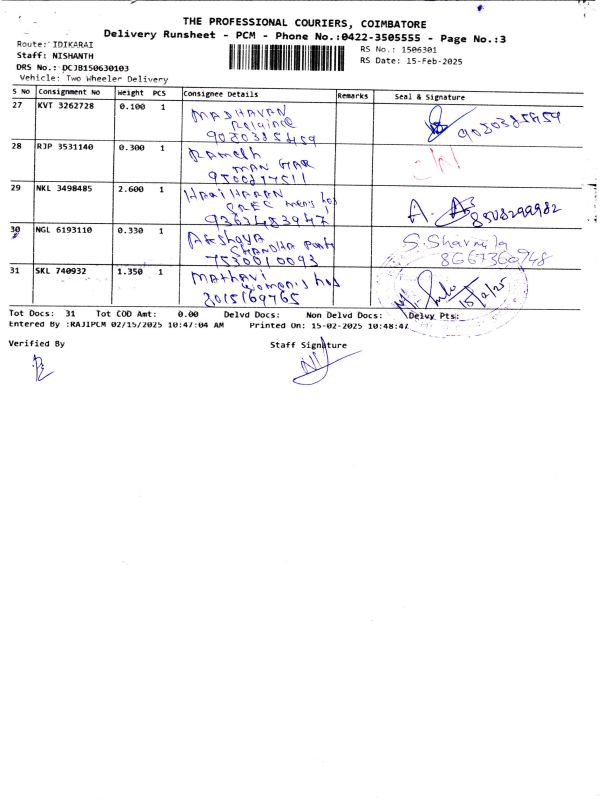 THE PROFESSIONAL COURIERS, COIMBATORE
Delivery Runsheet - PCM - Phone No.:0422-3505555 - Page No.:3
Route: IDIKARAI
Staff: NISHANTH
DRS No.: DCJB150630103
Vehicle: Two Wheeler Delivery
RS No.: 1506301
RS Date: 15-Feb-2025
S No Consignment No Weight PCS Consignee Details Remarks Seal & Signature
27 KVT 3262728 0.100 1 MADHAVAN
9080385459 9080385459
28 RJP 3531140 0.300 1 Ramesh
29 NKL 3498485 2.600 1 HARIHARAN
SREC men's hos
9363483947 A.
30 NGL 6193110 0.330 1 AKshaya S. Sharmila
7530010093
31 SKL 740932 1.350 1 Mathavi
women's hos 15/2/25
Tot Docs: 31 Tot COD Amt: 0.00 Delvd Docs: Non Delvd Docs: Delvy Pts:
Entered By :RAJIPCM 02/15/2025 10:47:04 AM Printed On: 15-02-2025 10:48:47
Verified By Staff Signature